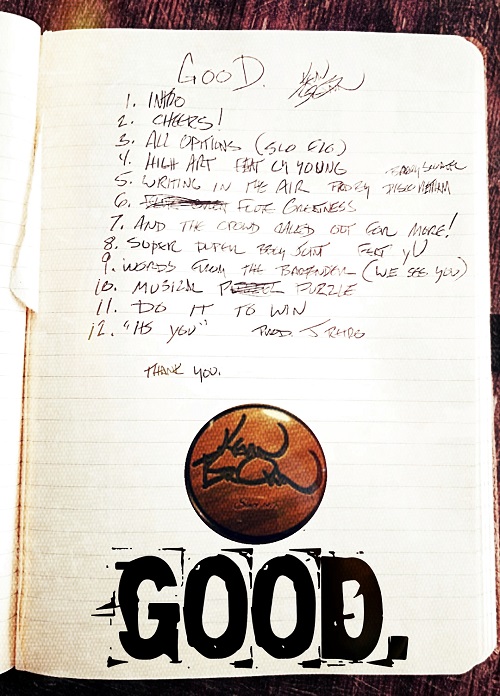 GOOD.
1. INTRO
2. CHEERS!
3. ALL OPTIONS (SLO FLO)
4. HIGH ART FEAT CY YOUNG
5. WRITING IN THE AIR
6. FLUTE GREATNESS
7. AND THE CROWD CALLED OUT FOR MORE!
8. SUPER DUPER JOINT FEAT YU
9. WORDS FROM THE BARTENDER (WE SEE YOU)
10. MUSICAL PUZZLE
11. DO IT TO WIN
12. "ITS YOU" PROD. J RAWLS
THANK YOU.
GOOD.